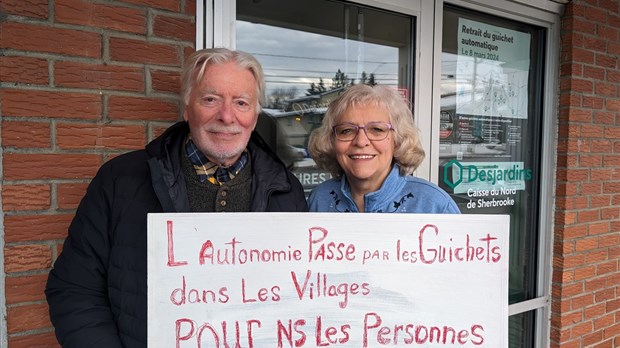 Retrait du guichet
automatique
Le 8 mars 2024
Desjardins
Caisse du Nord
de Sherbrooke
L'Autonomie Passe par les Guichets
dans Les Villages
POUR NS Les Personnes